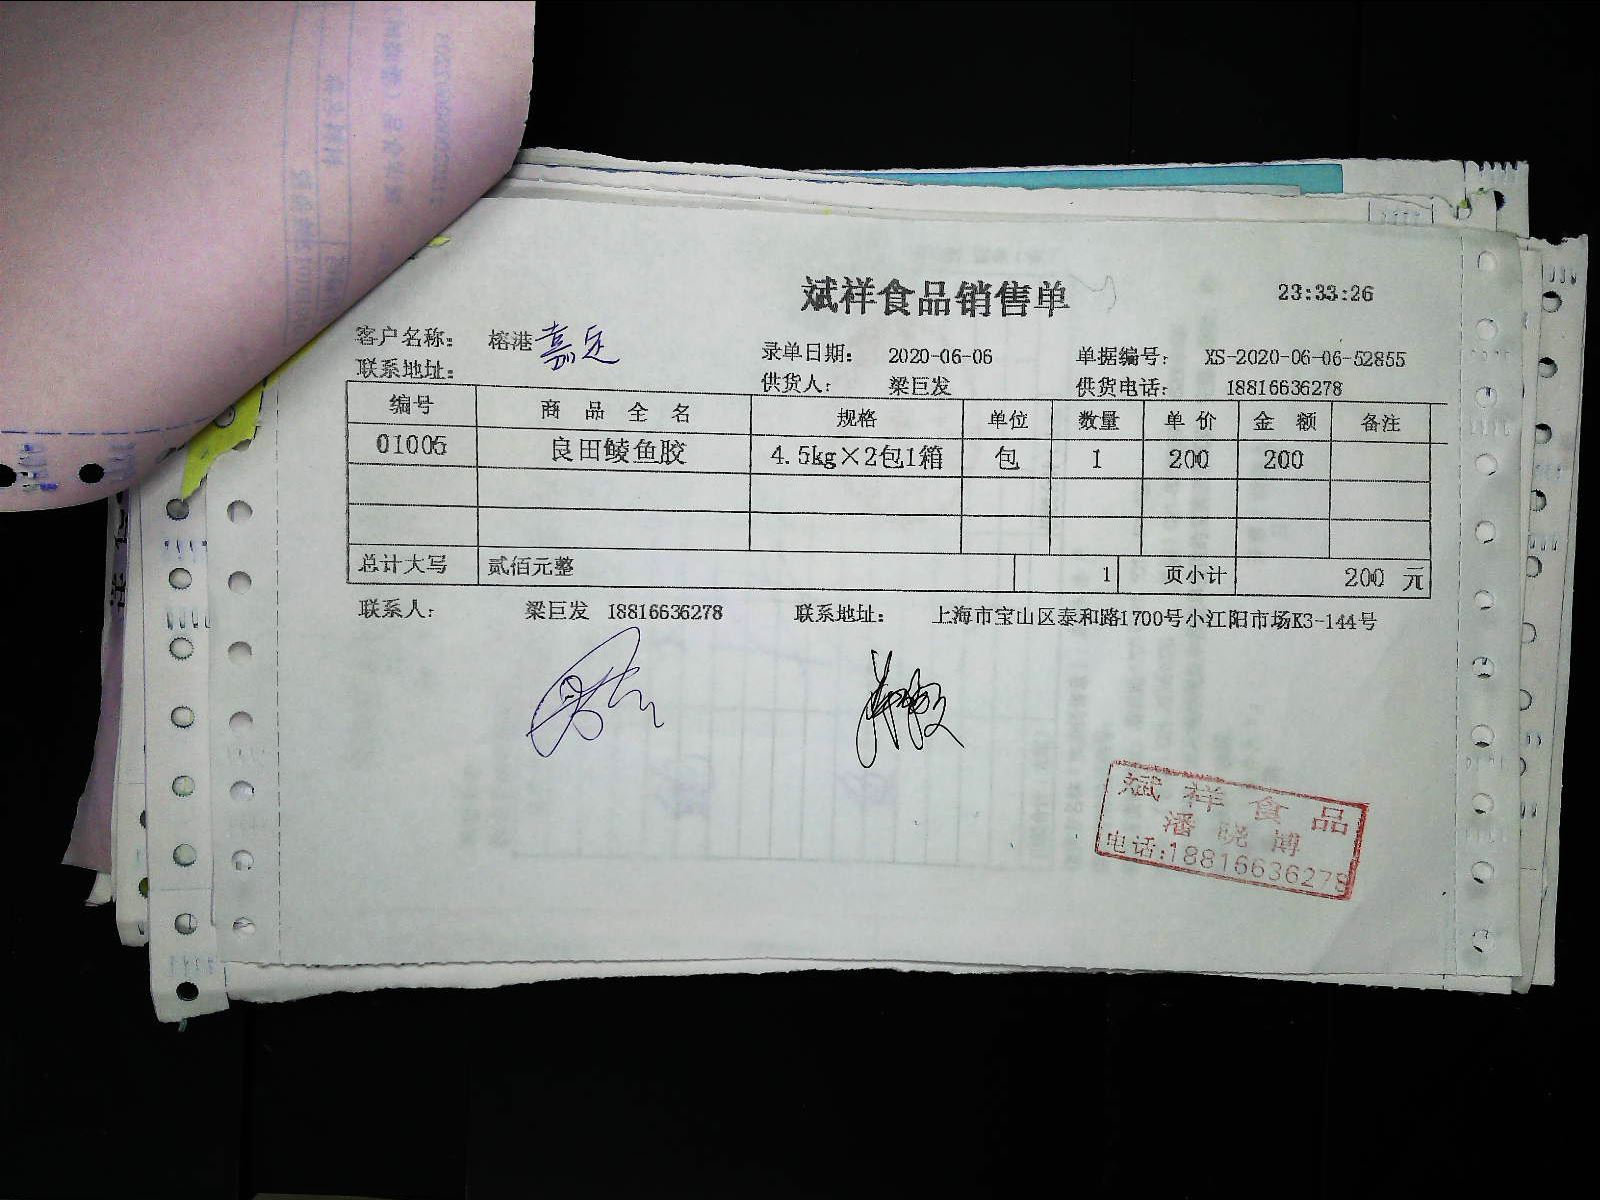 斌祥食品销售单 23:33:26
客户名称： 榕港 嘉定
录单日期： 2020-06-06 单据编号： XS-2020-06-06-52855
联系地址：
供货人： 梁巨发 供货电话： 18816636278
编号 商品全名 规格 单位 数量 单价 金额 备注
01005 良田鲮鱼胶 4.5kg×2包1箱 包 1 200 200
总计大写 贰佰元整 1 页小计 200 元
联系人： 梁巨发 18816636278 联系地址： 上海市宝山区泰和路1700号小江阳市场K3-144号
斌祥食品
潘晓博
电话:18816636278